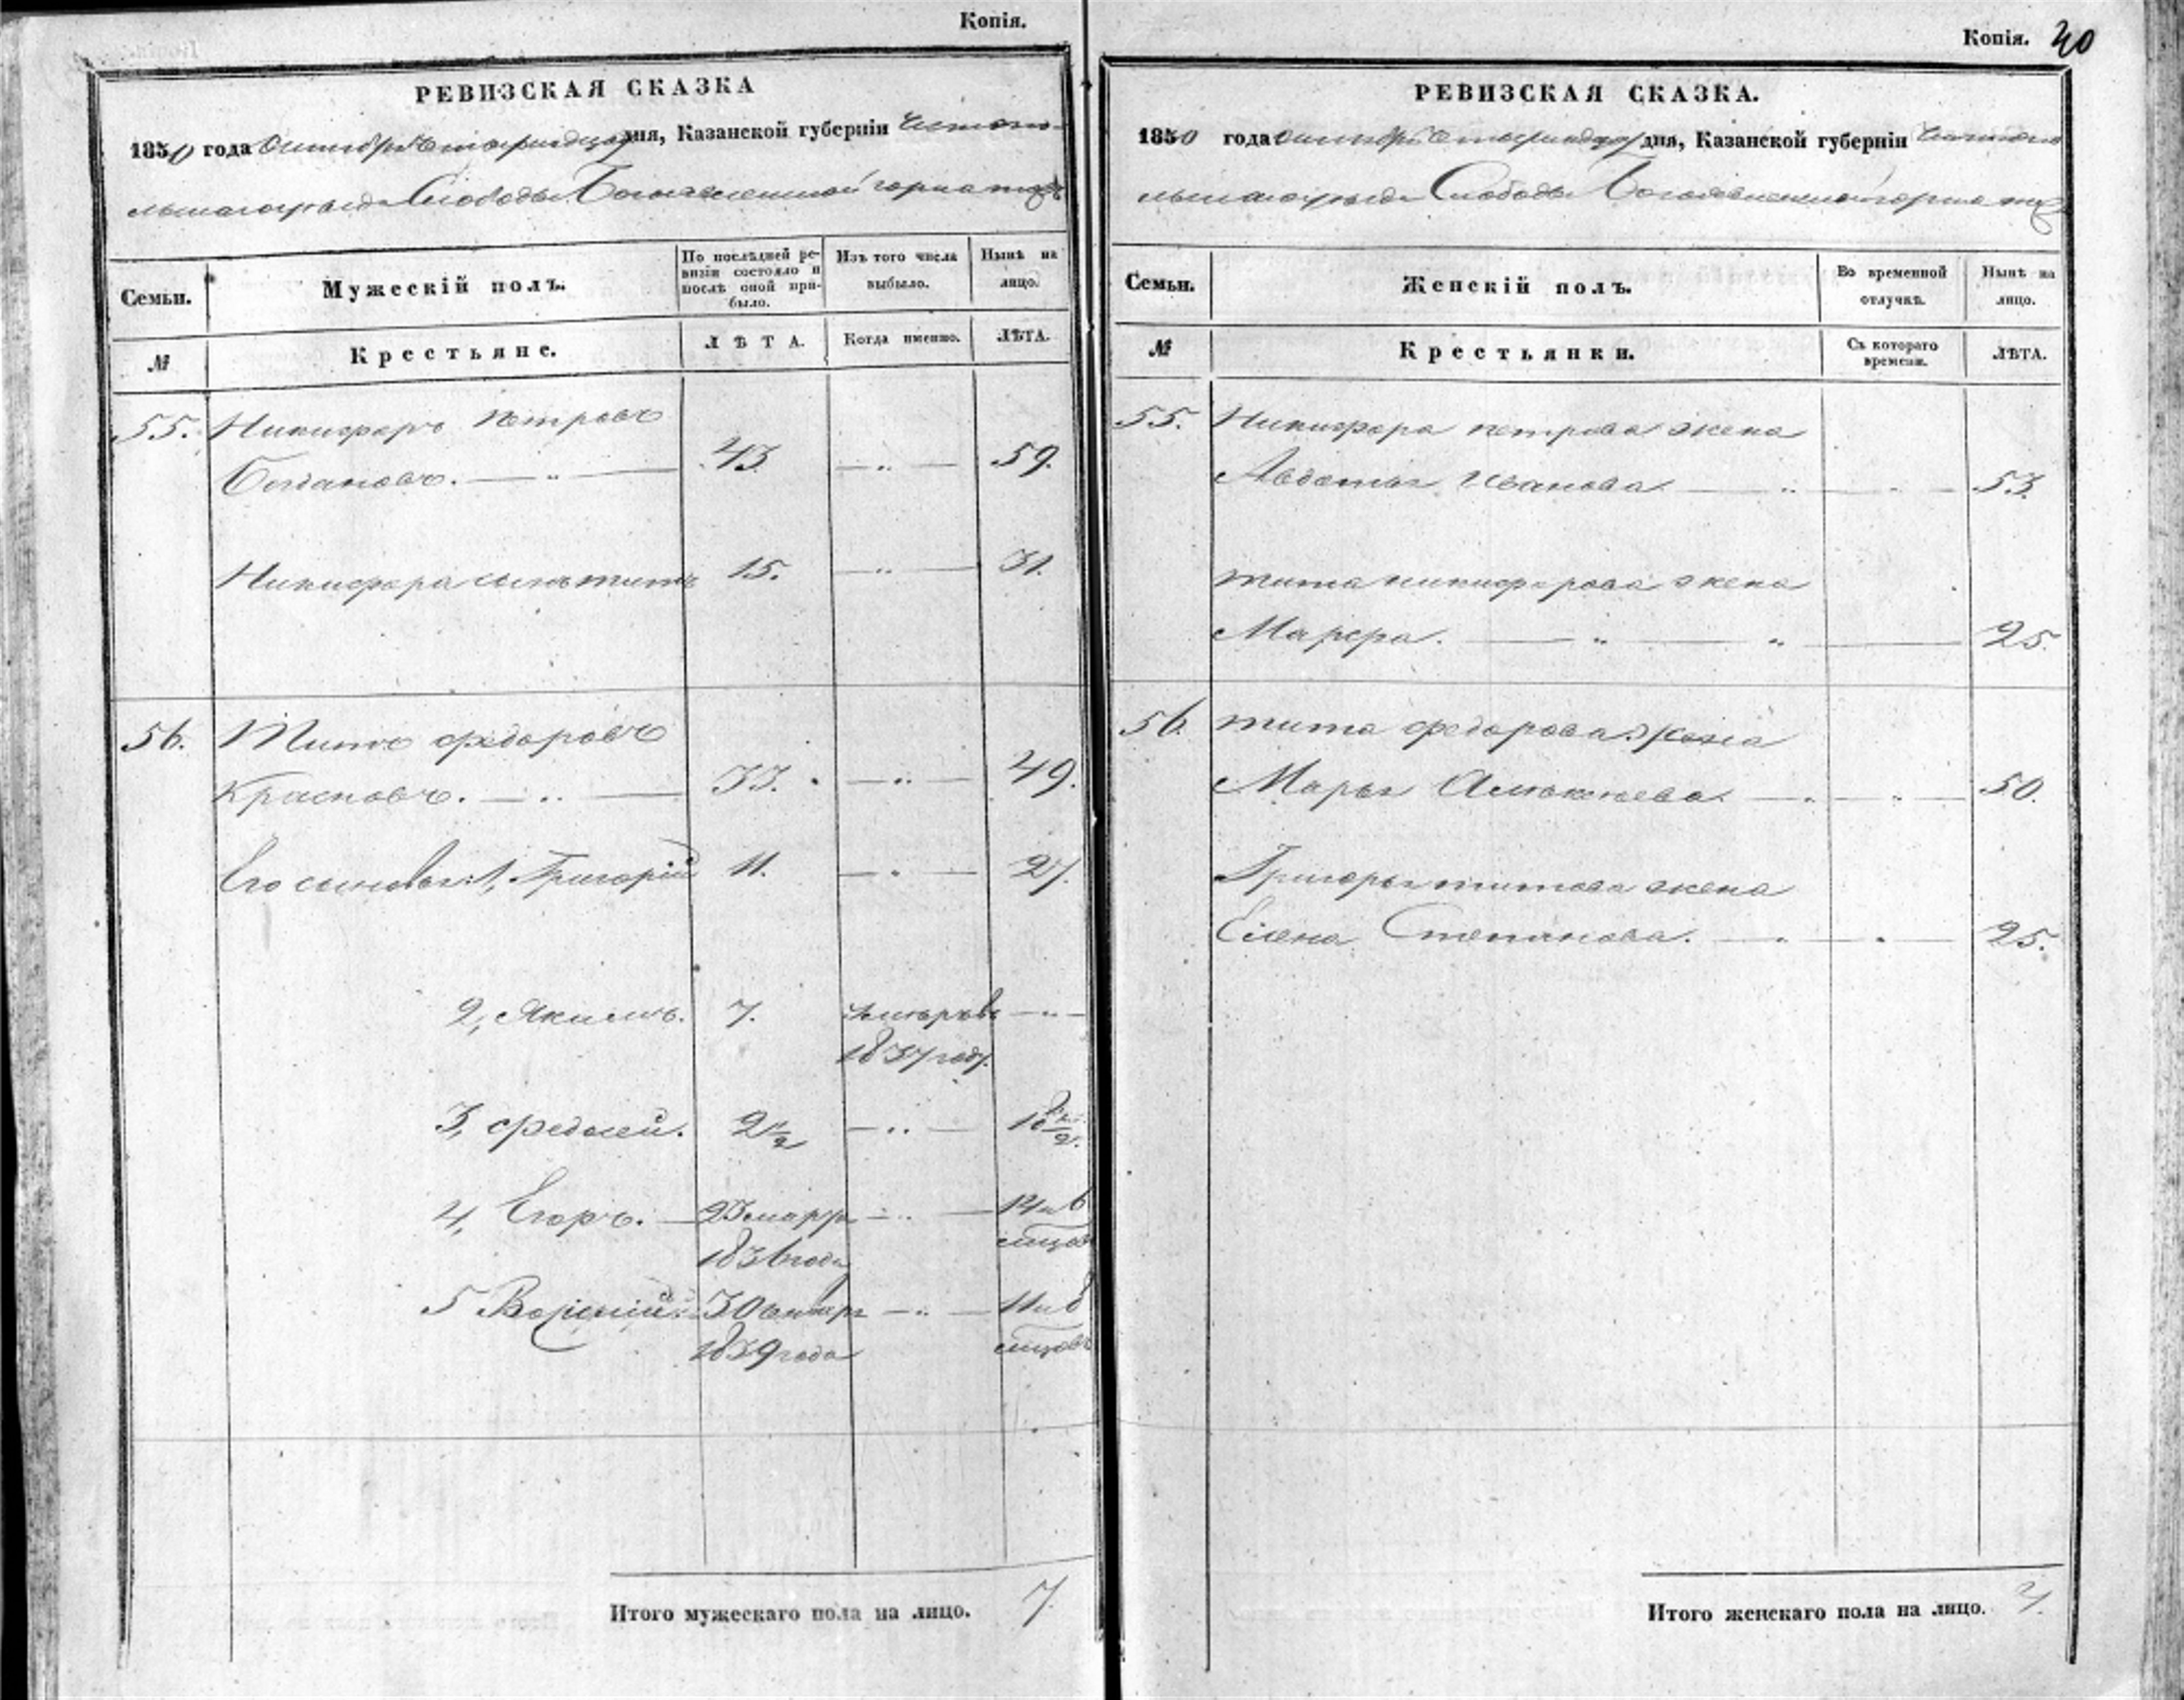 Копія.
РЕВИЗСКАЯ СКАЗКА
1850 года Октября дня, Казанской губерніи Чистопо-
льскаго уѣзда Слободы Богоявленской горна тожъ
Семьи.
Мужескій полъ.
По послѣдней ре-
визіи состояло и
послѣ оной при-
было.
Изъ того числа
выбыло.
Нынѣ на
лицо.
№
Крестьяне.
ЛѢТА.
Когда именно.
ЛѢТА.
55. Никифоръ Петровъ
Богдановъ. — „ — 43. — „ — 59.
Никифора сынъ титъ 15. — „ — 31.
56. Титъ федоровъ
Красновъ. — „ — 33. — „ — 49.
Его сыновья: 1, Григорій 11. — „ — 27.
2, Якимъ. 7. умеръ въ — „ —
1837 году.
3, федосей. 2 1/2 — „ — 18 1/2.
4, Егоръ. — 23 марта — „ — 14 и 6
1836 года
5 30 января — „ — 11 и 8
1839 года
Итого мужескаго пола на лицо. 7.
Копія. 40
РЕВИЗСКАЯ СКАЗКА.
1850 года Октября дня, Казанской губерніи Чистопо
льскаго уѣзда Слободы Богоявленской горна тожъ
Семьи.
Женскій полъ.
Во временной
отлучкѣ.
Нынѣ на
лицо.
№
Крестьянки.
Съ котораго
времени.
ЛѢТА.
55. Никифора петрова жена
Авдотья Иванова — „ — „ — 53.
тита никифорова жена
Марфа. — „ — „ — 25.
56. тита федорова жена
Марья Алексѣева. — „ — „ — 50.
Григорья титова жена
Елена Степанова. — „ — „ — 25.
Итого женскаго пола на лицо. 4.